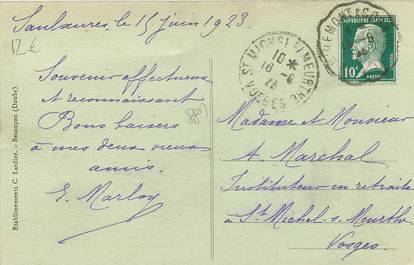 Saulxures, le 15 juin 1923
12 €
Souvenir affectueux
et reconnaissant
Bons baisers
à mes deux vieux
amis.
E. Marloy
88
Etablissements C. Lardier. - Besançon (Doubs)
ST MICHEL S/ MEURTHE
10 *
16 - 6
23
VOSGES
REPUBLIQUE FRANÇAISE
10c
POSTES
Madame et Monsieur
A. Marchal
Instituteur en retraite
à St Michel s. Meurthe
Vosges.